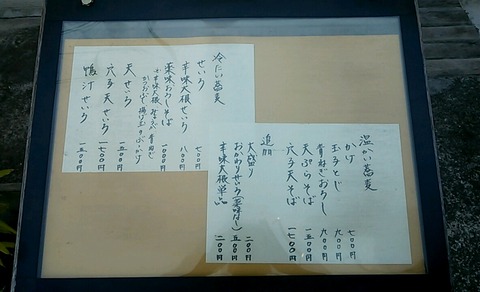 冷たい蕎麦
せいろ 七〇〇円
辛味大根せいろ 八〇〇円
薬味おろしそば 一〇〇〇円
天せいろ 一五〇〇円
穴子天せいろ 一七〇〇円
鴨汁せいろ 一五〇〇円
温かい蕎麦
かけ 七〇〇円
玉子とじ 九〇〇円
青ねぎおろし 九〇〇円
天ぷらそば 一五〇〇円
穴子天そば 一七〇〇円
追加
大盛り 二〇〇円
おかわりせいろ(薬味なし) 五〇〇円
辛味大根単品 二〇〇円